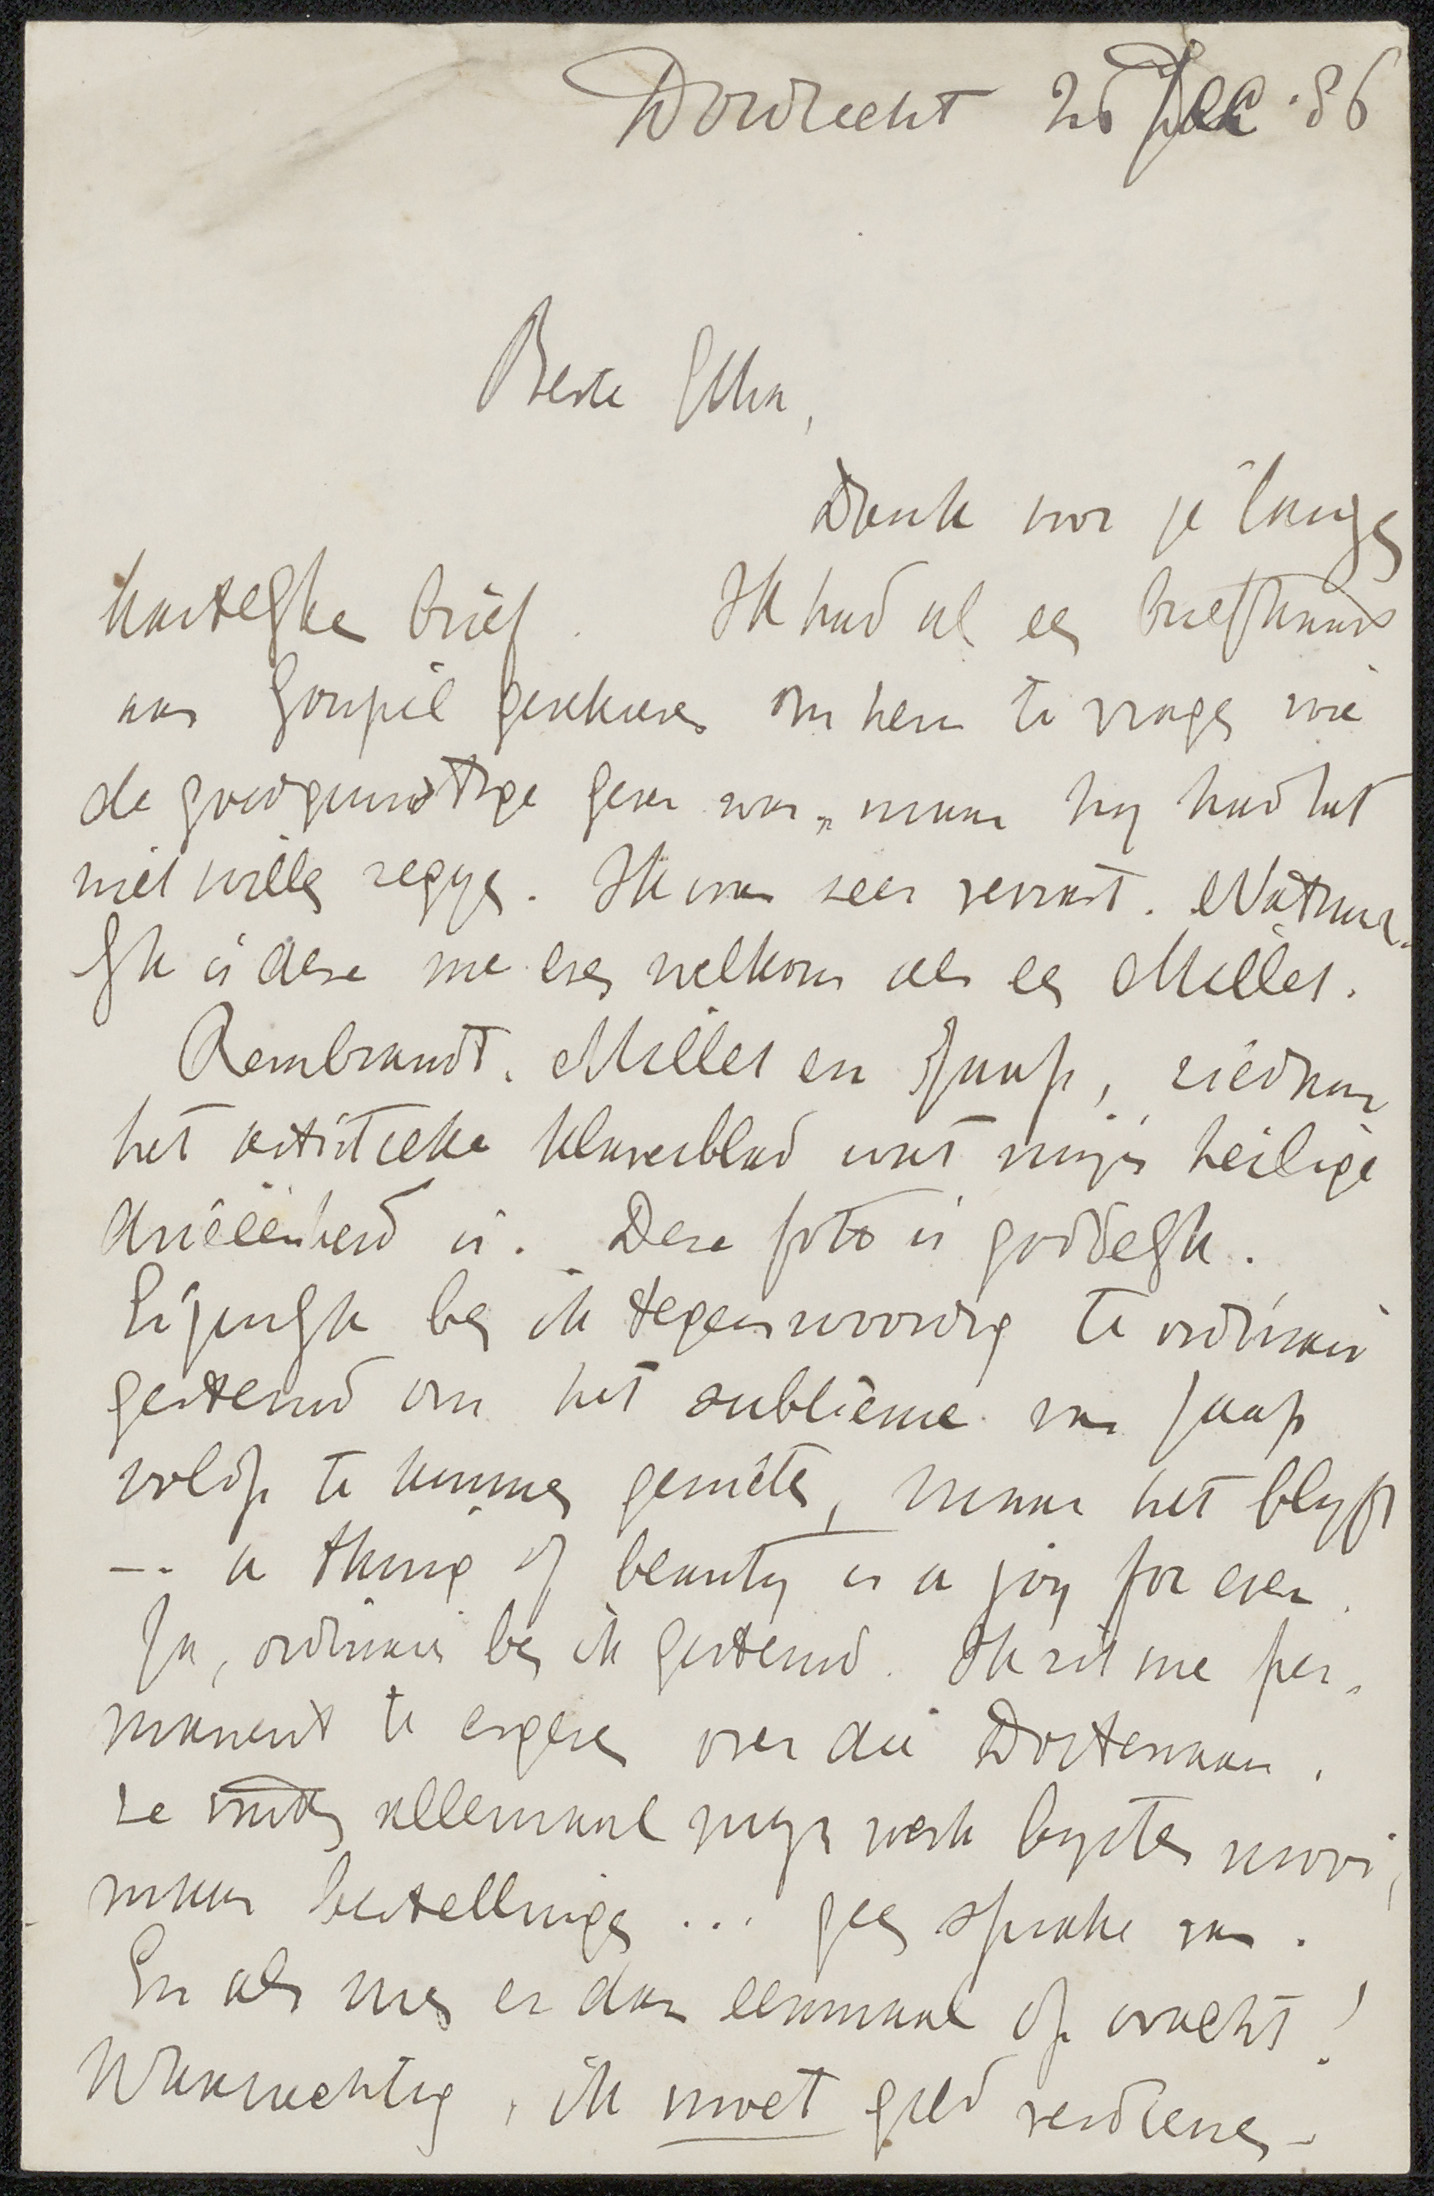 Dordrecht 26 Dec '86
Beste Etha,
Dank voor je lange
hartelijke brief. Ik had al een briefkaart
aan Goupil geschreven om hem te vragen wie
de goedgunstige gever was, maar hij had het
niet willen zeggen. Ik was zeer verrast. Natuur-
lijk is deze me even welkom als een Millet.
Rembrandt, Millet en Jaap, ziedaar
het artistieke klaverblad wat mijn heilige
drieëenheid is. Deze foto is goddelijk.
Eigenlijk ben ik tegenwoordig te ordinair
gestemd om het sublieme van Jaap
volop te kunnen genieten, maar het blijft
--- a thing of beauty is a joy for ever.
Ja, ordinair ben ik gestemd. Ik zit me per-
manent te ergeren over die Dortenaars.
Ze vinden allemaal mijn werk byster mooi,
maar bestellingen ... geen sprake van.
En als men er dan eenmaal op wacht!
Waarachtig, ik moet geld verdienen -